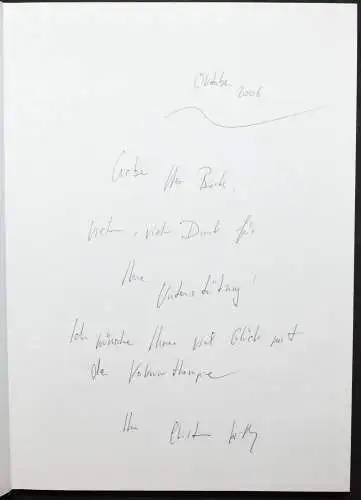 Oktober
2006
Lieber Herr Beck,
vielen, vielen Dank für
Ihre
Unterstützung!
Ich wünsche Ihnen viel Glück mit
der Vakuumtherapie
Ihr Christian